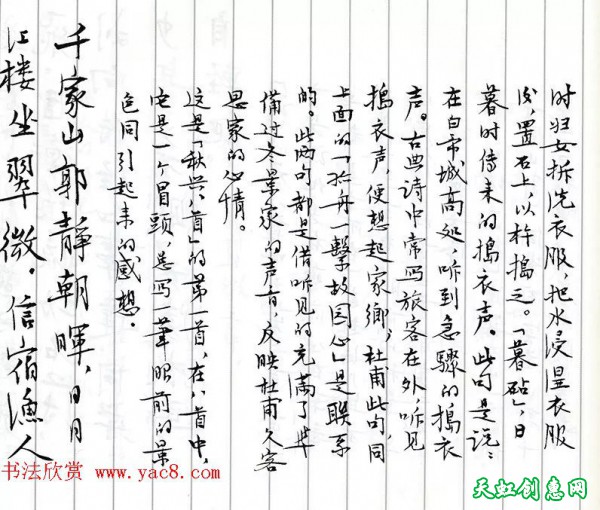 时妇女拆洗衣服，把水浸湿衣服
后，置石上，以杵捣之。「暮砧」，日
暮时传来的捣衣声。此句是说：
在白帝城高处，听到急骤的捣衣
声。古典诗中常写旅客在外，听见
捣衣声，便想起家乡，杜甫此句，同
上面的「孤舟一繫故园心」是联系
的。此两句都是借听见的充满了准
备过冬景象的声音，反映杜甫久客
思家的心情。
这是「秋兴八首」的第一首，在八首中，
它是一个冒头，是写一篇眼前的景
色同引起来的感想。
千家山郭靜朝暉，日日
江楼坐翠微．信宿漁人
书法欣赏 www.yac8.com
天虹创惠网